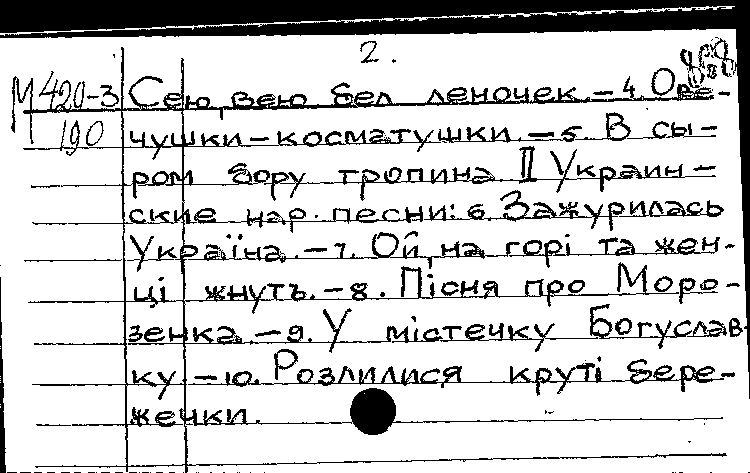 2.
М420-3 Сею, вею бел леночек. – 4. Ове-
190 чушки – косматушки. – 5. В сы-
ром бору тропина. II Украин-
ские нар. песни: 6. Зажурилась
Україна. – 7. Ой, на горі та жен-
ці жнуть. – 8. Пісня про Моро-
зенка. – 9. У містечку Богуслав-
ку. – 10. Розлилися круті бере-
жечки.